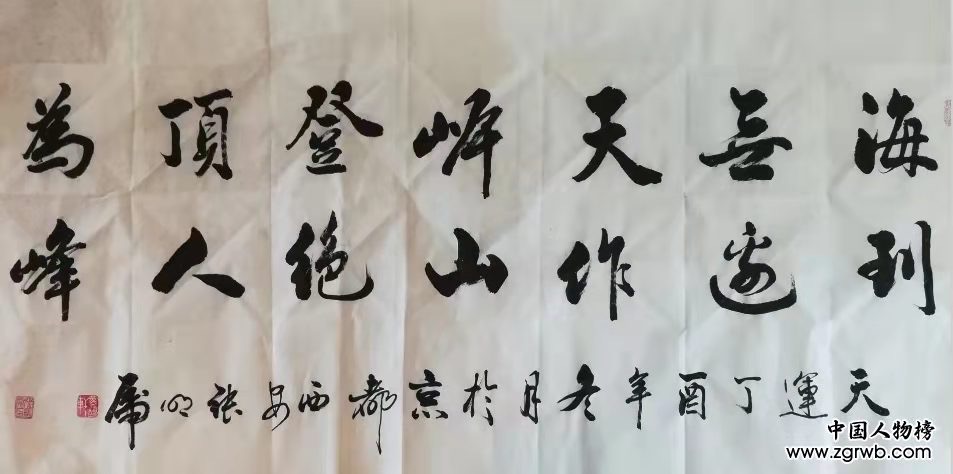 海到
無邊
天作
岸山
登絕
頂人
為峰
天運丁酉年冬月於京都西安張
中国人物榜
www.zgrwb.com